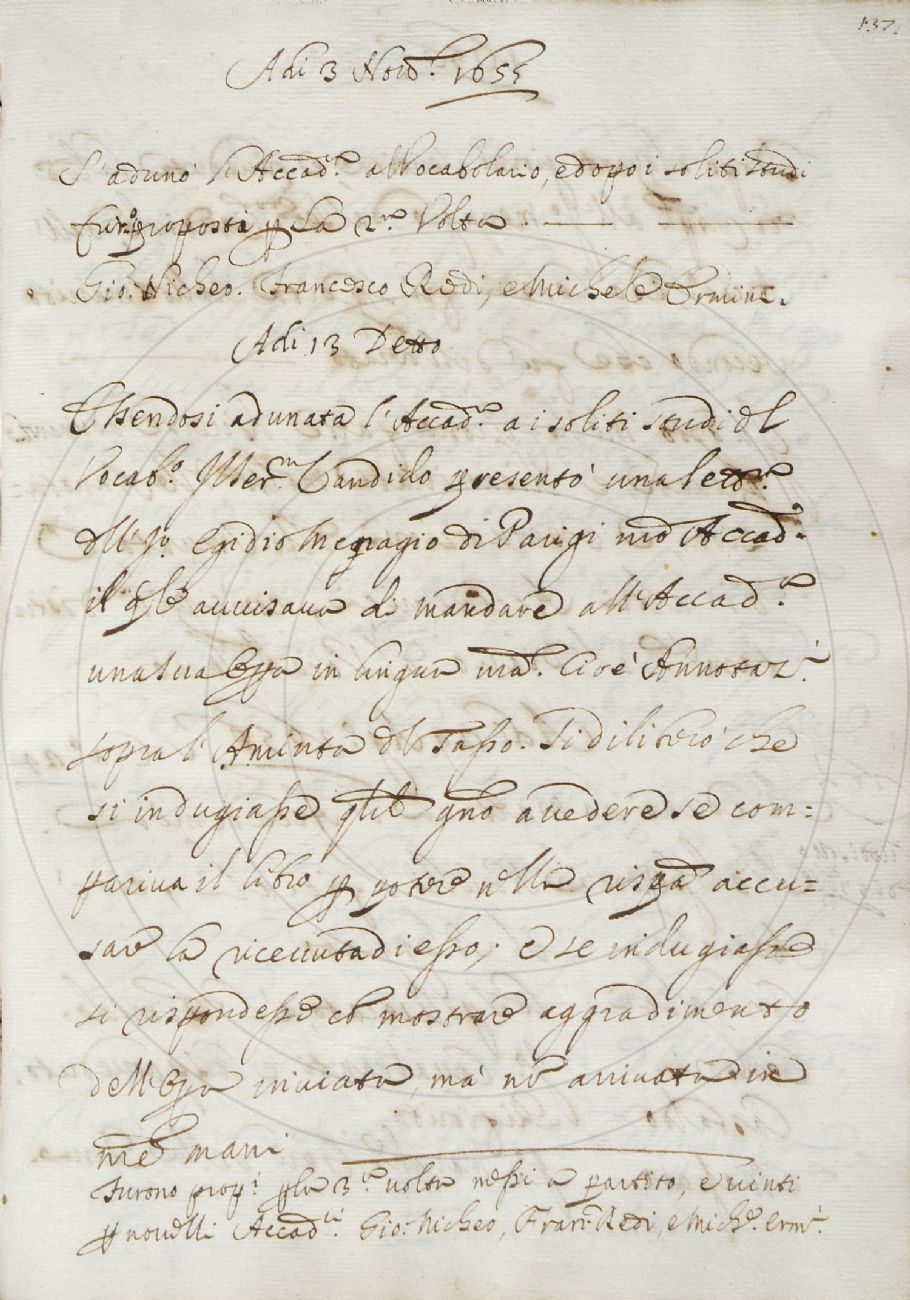 137.
Adi 3 Nov.e 1655
S'adunò l'Accad.a al Vocabolario, e dopo i soliti studi
furo proposti p La 2.a Volta
Gio. Nicheo. Francesco Redi, e Michele Ermini.
Adi 13 Detto
Essendosi adunata l'Accad.a a i soliti studi del
Vocab.o Ill Ser.m Candido presentò una lett.a
dell' Egidio Menagio di Parigi nro Accad.o
il qle avvisava di mandare all'Accad.a
una sua opra in lingua nra. Cioè Annotaz.i
sopra l'Aminta del Tasso. Si diliberò che
si indugiasse qlche gno a vedere se com=
pariva il libro p potere nella rispta accu=
sare la ricevuta di esso, e se indugiasse
si rispondesse cõ mostrare aggradimento
dell'opra inviata, ma nõ arrivata in
nre mani
Furono prop.i p la 3.a volta messi a partito, e vinti
p novelli Accad.ci Gio. Nicheo, Fran. Redi, e Mich.e Erm.i